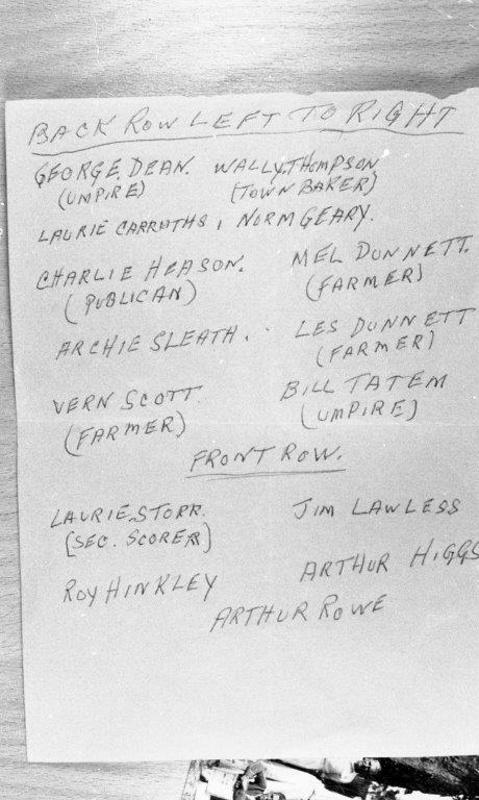 BACK ROW LEFT TO RIGHT
GEORGE. DEAN. WALLY. THOMPSON
(UMPIRE) (TOWN BAKER)
LAURIE CARROTHS, NORM GEARY.
CHARLIE HEASON. MEL DUNNETT.
(PUBLICAN) (FARMER)
ARCHIE SLEATH. LES DUNNETT
(FARMER)
VERN SCOTT. BILL TATEM
(FARMER) (UMPIRE)
FRONT ROW.
LAURIE. STORR. JIM LAWLESS
(SEC. SCORER)
ROY HINKLEY ARTHUR HIGGS
ARTHUR ROWE